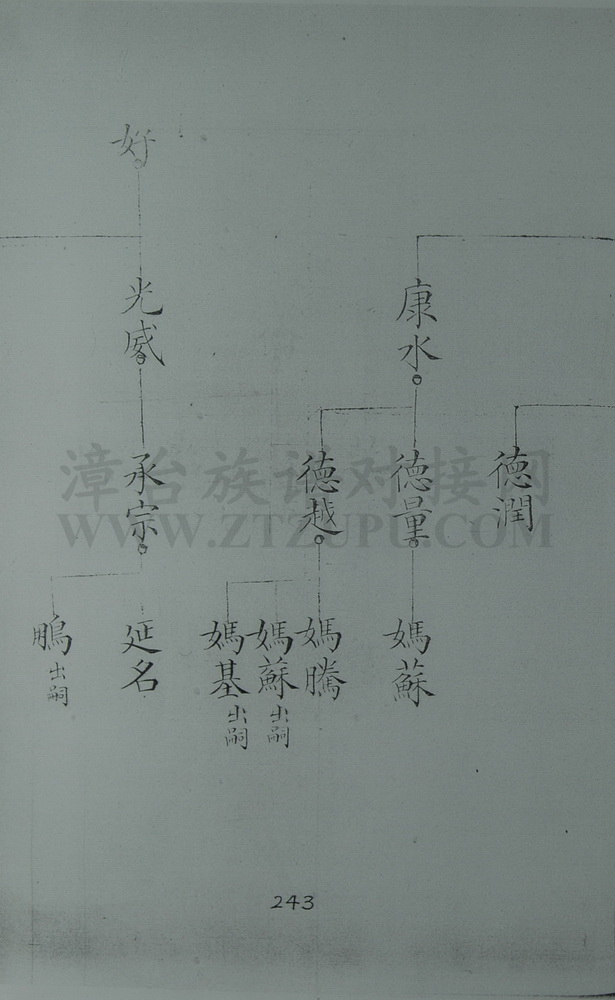 好
康水
光威
德潤
德量
德越
承宗
媽蘇
媽騰
媽蘇 出嗣
媽基 出嗣
延名
鵬 出嗣
243
漳台族谱对接网
WWW.ZTZUPU.COM